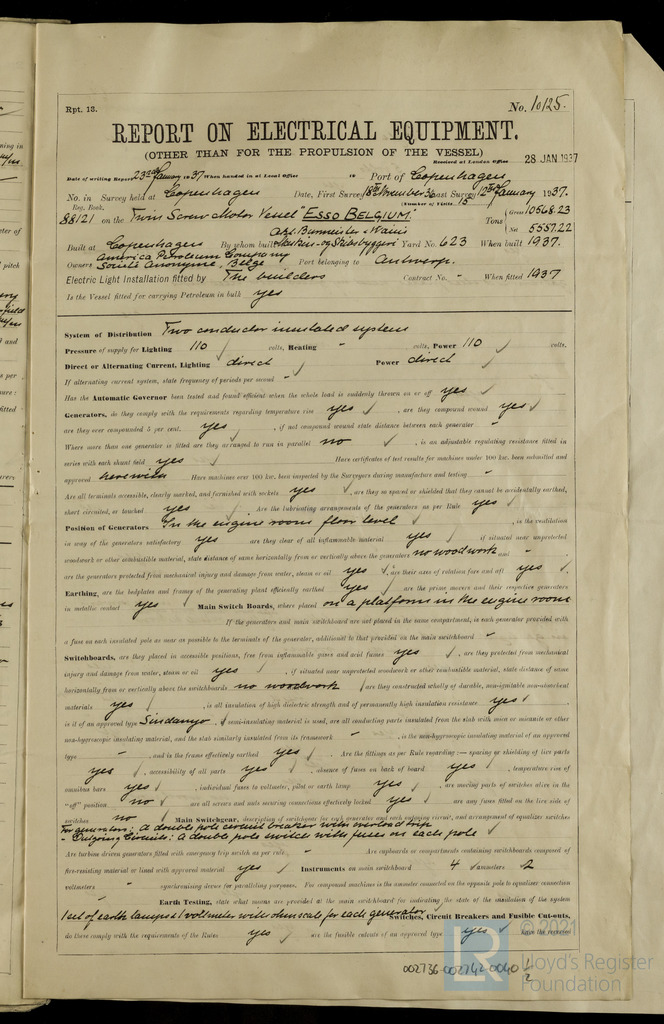 Rpt. 13.
No. 10125.
REPORT ON ELECTRICAL EQUIPMENT.
(OTHER THAN FOR THE PROPULSION OF THE VESSEL)
Received at London Office 28 JAN 1937
Date of writing Report 23rd January 1937 When handed in at Local Office 19 Port of Copenhagen
No. in Survey held at Copenhagen Date, First Survey 18th November 36 Last Survey 12th January 1937.
Reg. Book. (Number of Visits. 15
88121 on the Twin Screw Motor Vessel "ESSO BELGIUM" Tons Gross 10568.23
Net 5557.22
Akt. Burmeister & Wain's
Built at Copenhagen By whom built Maskin- og Skibsbyggeri Yard No. 623 When built 1937.
America Petroleum Company
Owners Société Anonyme, Belge Port belonging to Antwerp.
Electric Light Installation fitted by The builders Contract No. - When fitted 1937
Is the Vessel fitted for carrying Petroleum in bulk yes
System of Distribution Two conductor insulated system
Pressure of supply for Lighting 110 volts, Heating - volts, Power 110 volts.
Direct or Alternating Current, Lighting direct Power direct
If alternating current system, state frequency of periods per second -
Has the Automatic Governor been tested and found efficient when the whole load is suddenly thrown on or off yes
Generators, do they comply with the requirements regarding temperature rise yes, are they compound wound yes
are they over compounded 5 per cent. yes, if not compound wound state distance between each generator -
Where more than one generator is fitted are they arranged to run in parallel no, is an adjustable regulating resistance fitted in
series with each shunt field yes Have certificates of test results for machines under 100 kw. been submitted and
approved herewith Have machines over 100 kw. been inspected by the Surveyors during manufacture and testing -
Are all terminals accessible, clearly marked, and furnished with sockets yes, are they so spaced or shielded that they cannot be accidentally earthed,
short circuited, or touched yes Are the lubricating arrangements of the generators as per Rule yes
Position of Generators In the engine room floor level, is the ventilation
in way of the generators satisfactory yes, are they clear of all inflammable material yes, if situated near unprotected
woodwork or other combustible material, state distance of same horizontally from or vertically above the generators no woodwork and -
are the generators protected from mechanical injury and damage from water, steam or oil yes, are their axes of rotation fore and aft yes
Earthing, are the bedplates and frames of the generating plant efficiently earthed yes are the prime movers and their respective generators
in metallic contact yes Main Switch Boards, where placed on a platform in the engine room
If the generators and main switchboard are not placed in the same compartment, is each generator provided with
a fuse on each insulated pole as near as possible to the terminals of the generator, additional to that provided on the main switchboard -
Switchboards, are they placed in accessible positions, free from inflammable gases and acid fumes yes, are they protected from mechanical
injury and damage from water, steam or oil yes, if situated near unprotected woodwork or other combustible material, state distance of same
horizontally from or vertically above the switchboards no woodwork, are they constructed wholly of durable, non-ignitable non-absorbent
materials yes, is all insulation of high dielectric strength and of permanently high insulation resistance yes
is it of an approved type Sindanyo, if semi-insulating material is used, are all conducting parts insulated from the slab with mica or micanite or other
non-hygroscopic insulating material, and the slab similarly insulated from its framework -, is the non-hygroscopic insulating material of an approved
type -, and is the frame effectively earthed yes Are the fittings as per Rule regarding:— spacing or shielding of live parts
yes, accessibility of all parts yes, absence of fuses on back of board yes, temperature rise of
omnibus bars yes, individual fuses to voltmeter, pilot or earth lamp yes, are moving parts of switches alive in the
"off" position no, are all screws and nuts securing connections effectively locked yes, are any fuses fitted on the live side of
switches no Main Switchgear, description of switchgear for each generator and each outgoing circuit, and arrangement of equalizer switches
For generators: A double pole circuit breaker with overload trip
- Outgoing Circuits: A double pole switch with fuses on each pole
Are turbine driven generators fitted with emergency trip switch as per rule. - Are cupboards or compartments containing switchboards composed of
fire-resisting material or lined with approved material yes Instruments on main switchboard 4 ammeters 2
voltmeters - synchronising device for paralleling purposes. For compound machines is the ammeter connected on the opposite pole to equaliser connection
- Earth Testing, state what means are provided at the main switchboard for indicating the state of the insulation of the system
1 set of earth lamps & 1 voltmeter with ohm scale for each generator Switches, Circuit Breakers and Fusible Cut-outs,
do these comply with the requirements of the Rules yes are the fusible cutouts of an approved type yes have the reversed
002736-002742-0040 1/2
© 2021
LR
Lloyd's Register
Foundation